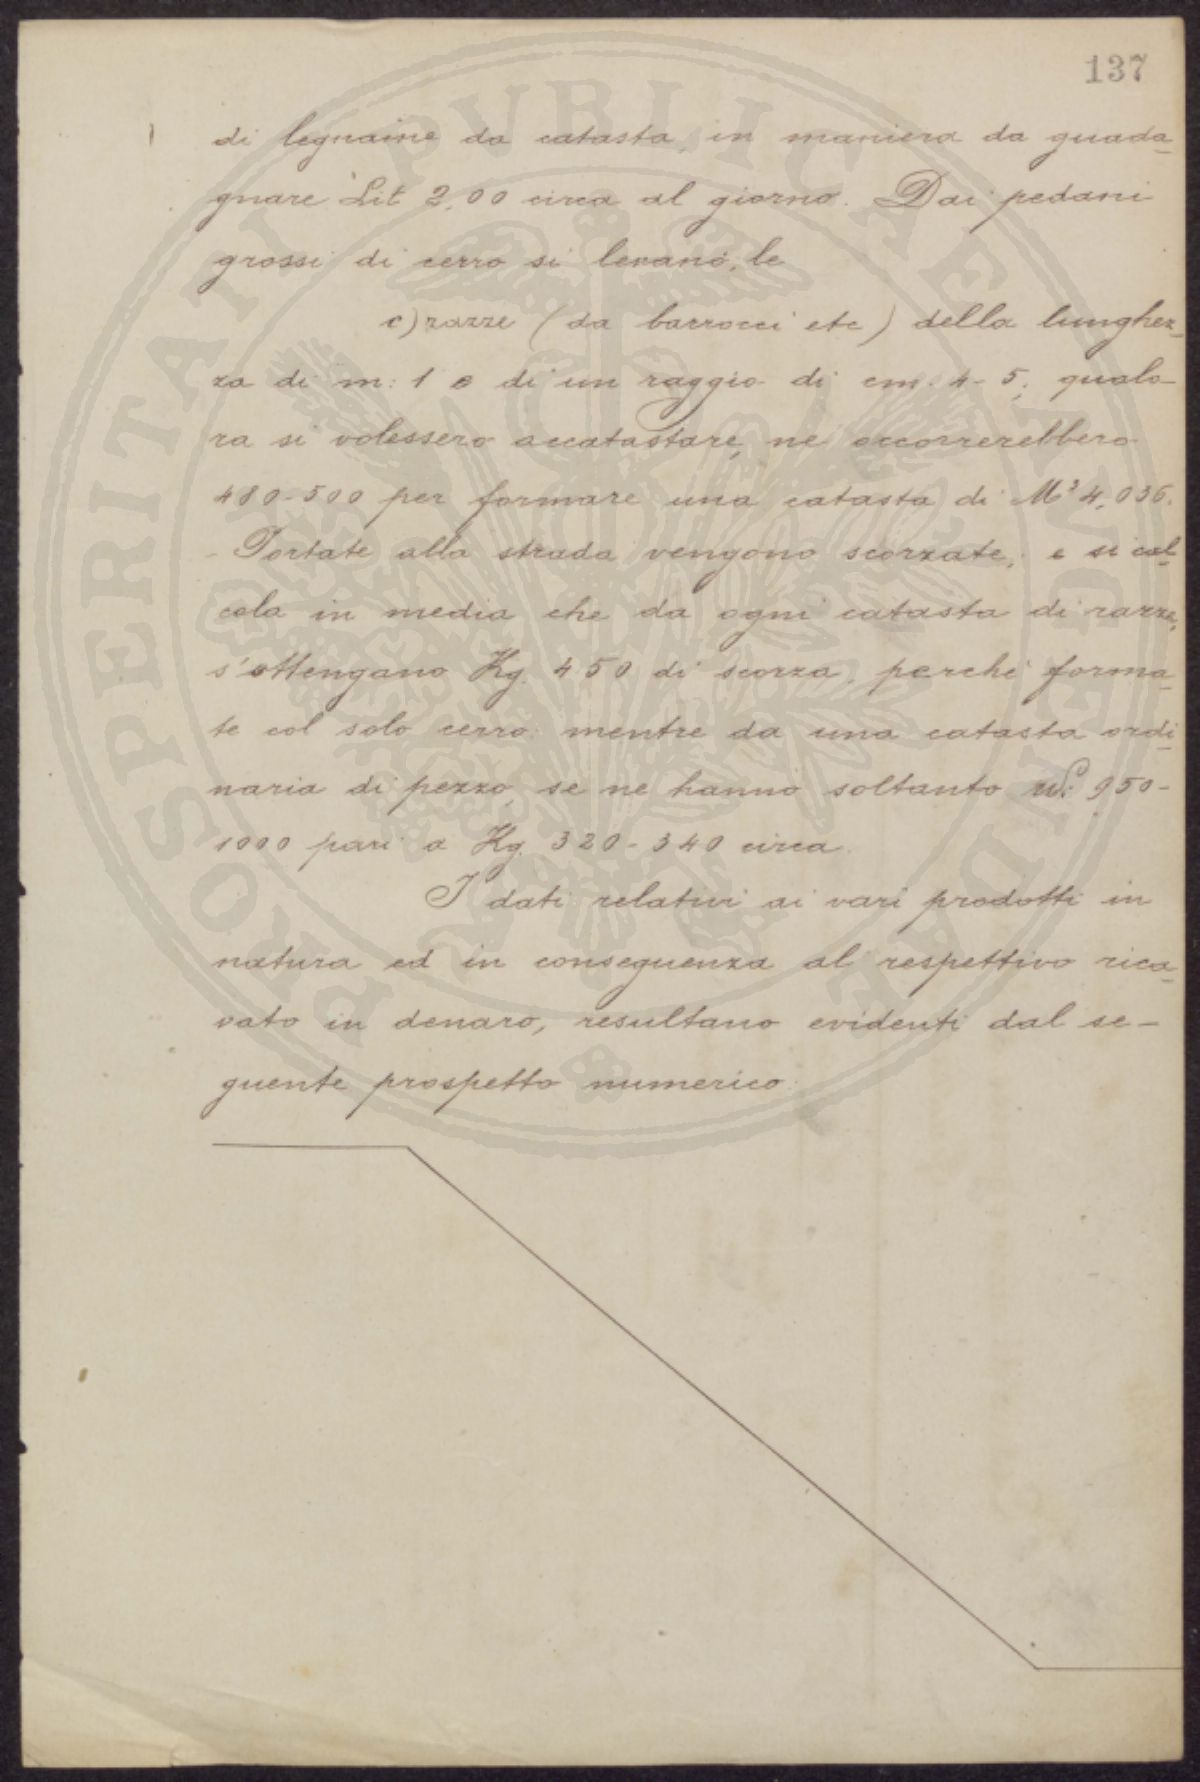 137
di legname da catasta, in maniera da guada-
gnare Lit 2,00 circa al giorno. Dai pedani
grossi di cerro si levano, le
c) razze (da barrocci etc) della lunghez-
za di m: 1 e di un raggio di cm. 4-5; qualo-
ra si volessero accatastare, ne occorrerebbero
480-500 per formare una catasta di M³ 4,036.
- Portate alla strada vengono scorzate, e si cal-
cola in media che da ogni catasta di razze,
s'ottengano Kg. 450 di scorza, perchè forma-
te col solo cerro: mentre da una catasta ordi-
naria di pezzo, se ne hanno soltanto 950-
1000 pari a Kg. 320-340 circa.
I dati relativi ai vari prodotti in
natura ed in conseguenza al respettivo rica-
vato in denaro, resultano evidenti dal se-
guente prospetto numerico:
PROSPERITATI PVBLICAE AVGENDAE